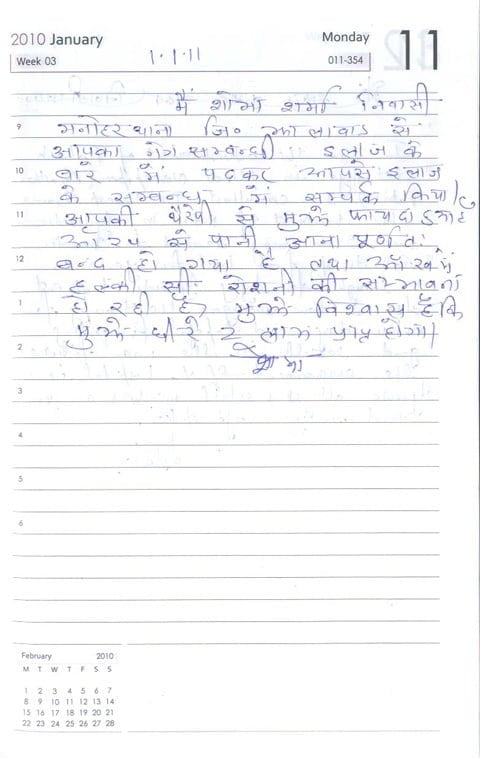 2010 January
Monday
11
Week 03
1.1.11
011-354
मैं शोभा शर्मा निवासी
9 मनोहर थाना जि० झालावाड से
आपका नेत्र सम्बन्धी इलाज के
10 बारे में पढकर आपसे इलाज
के सम्बन्ध में सम्पर्क किया।
11 आपकी थैरेपी से मुझे फायदा हुआ है
आँख से पानी आना पूर्णतः
12 बन्द हो गया है तथा आँख में
हल्की सी रोशनी की सम्भावना
1 हो रही है मुझे विश्वास है कि
मुझे धीरे २ लाभ प्राप्त होगा।
2
शोभा
3
4
5
6
February 2010
M T W T F S S
1 2 3 4 5 6 7
8 9 10 11 12 13 14
15 16 17 18 19 20 21
22 23 24 25 26 27 28